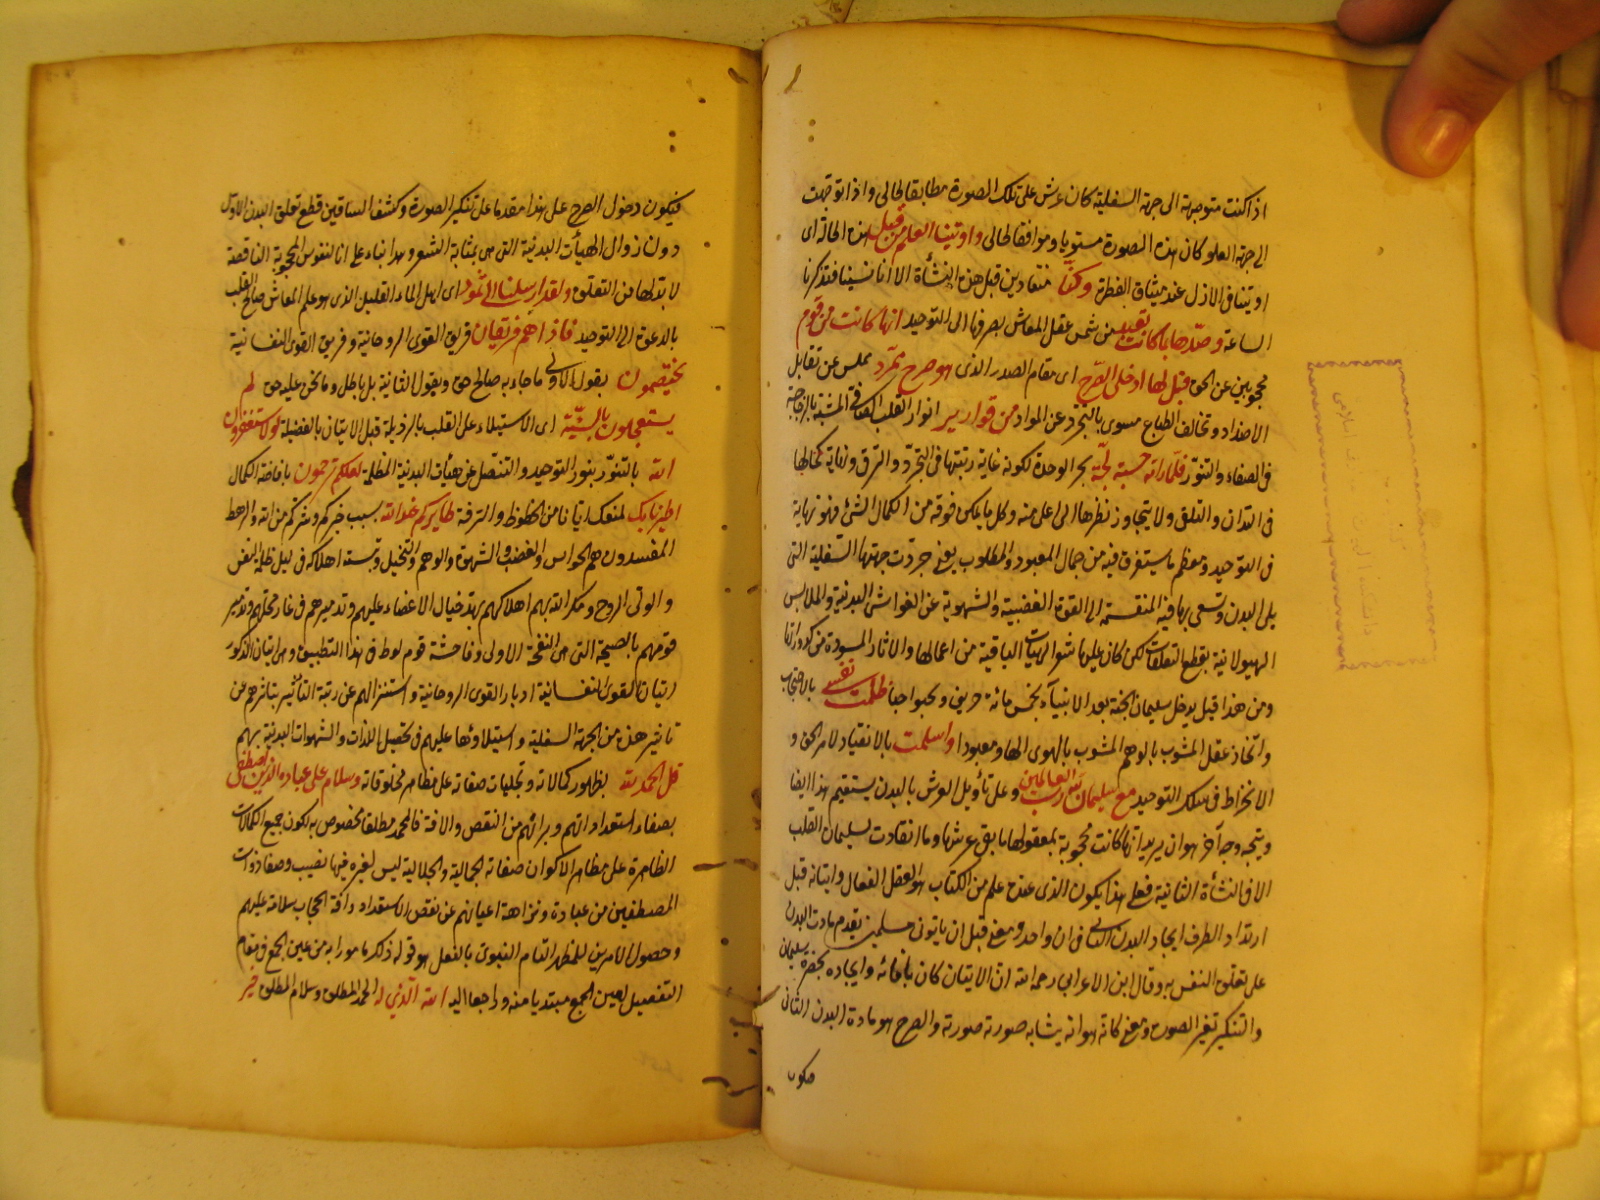 اذا كنت متوجهة الى جهة السفلية كان عرش على تلك الصورة مطابقا لحالى واذا توجهت
الى جهة العلو كان هذه الصورة مستويا وموافقا لحالى واوتينا العلم من قبل هذه الحالة اى
اوتينا فى الازل عند ميثاق الفطرة وكنّا منقادين قبل هذه النشأة الا انا نسينا فتذكرنا
الساعة وصدّها ما كانت تعبد من شمس عقل المعاش بصرفها الى التوحيد انها كانت من قوم
محجوبين عن الحق قيل لها ادخلى الصّرح اى مقام الصدر الذى هو صرح ممرّد مملس عن تقابل
الاضداد وتخالف الطباع مسوى بالتجرد عن المواد من قوارير انوار القلب الصافى المشبه بالزجاجة
فى الصفاء والتنوّر فلمّا راته حسبته لجّة بحر الوحدة لكونه غاية رتبتها فى التجرد والترقى ونهاية كمالها
فى التدانى والتلقى ولا يتجاوز نظرها الى اعلى منه وكل ما يمكن فوقه من الكمال الشئ فهو نهاية
فى التوحيد ومعظم ما يستغرق فيه من جمال المعبود والمطلوب يعنى جردت جهتها السفلية التى
يلى البدن وتسعى بها فيه المنقسمة الى القوة الغضبية والشهوية عن الغواشى البدنية والملابس
الهيولانية بقطع التعلقات لكن كان عليها شعر الهيئات الباقية من اعمالها والاثار المسودة من كدوراتها
ومن هذا قيل يدخل سليمان الجنة بعد الانبياء بخمس مائة خريف ويحبوا حبا ظلمت نفسى بالاحتجاب
واتخاذ عقل المشوب بالوهم المشوب بالهوى الها ومعبودا واسلمت بالانقياد لامر الحق و
الانخراط فى سلك التوحيد مع سليمان لله رب العالمين وعلى تأويل العرش بالبدن يستقيم هذا ايضا
ويتجه وجه آخر هو ان يريد انها كانت محجوبة بمعقولها ما بقى عرشها وما انقادت سليمان القلب
الا فى النشأة الثانية فعلى هذا يكون الذى عنده علم من الكتاب هو العقل الفعال وايتائه قبل
ارتداد الطرف ايجاد البدن الثانى فى آن واحد ومعنى قبل ان ياتونى مسلمين تقدم مادة البدن
على تعلق النفس به وقال ابن الاعرابى رحمه الله انّ الاتيان كان بافنائه وايجاده بحضرة سليمان
والتنكير تغير الصورة ومعنى كانه هو انه يشابه صورته صورته والصرح هو مادة البدن الثانى
فيكون
فيكون دخول الصرح على هذا مقدما على تنكير الصورة وكشف الساقين قطع تعلق البدن الاول
دون زوال الهيأت البدنية التى هى بمثابة الشعر وهذا بناء على ان النفوس المحجوبة الناقصة
لا بد لها من التعلق ولقد ارسلنا الى ثمود اى اهل الماء القليل الذى هو علم المعاش صالح القلب
بالدعوة الى التوحيد فاذا هم فريقان فريق القوى الروحانية وفريق القوى النفسانية
يختصمون يقول الاولى ما جاء به صالح حق ويقول الثانية بل باطل وما نحن عليه حق لم
يستعجلون بالسيّئة اى الاستيلاء على القلب بالرذيلة قبل الاتيان بالفضيلة لولا تستغفرون
الله بالتنوّر بنور التوحيد والتنصّل عن هيئات البدنية المظلمة لعلكم ترحمون بافاضة الكمال
اطيرنا بك لمنعك ايانا من الحظوظ والترفه طايركم عند الله سبب خيركم وشركم من الله والرهط
المفسدون هم الحواس والغضب والشهوة والوهم والتخيل وتبيته اهلاكه فى ليل ظلمة النفس
والولى الروح ومكر الله بهم اهلاكهم بهدّ جبال الاعضاء عليهم وتدميرهم فى غار محلهم وتدمير
قومهم بالصيحة التى هى النفخة الاولى وفاحشة قوم لوط فى هذا التطبيق وهى اتيان الذكور
اتيان القوى النفسانية ادبار القوى الروحانية واستنزالهم عن رتبة التأثير بتاثرهم عن
تاثير هذه من الجهة السفلية واستيلاؤها عليهم فى تحصيل اللذات والشهوات البدنية بهم
قل الحمد لله بظهور كمالاته وتجليات صفاته على مظاهر مخلوقاته وسلام على عباده الذين اصطفى
بصفاء استعداداتهم وبرائهم من النقص والافة فالحمد مطلقا مخصوص به لكون جميع الكمالات
الظاهرة على مظاهر الاكوان صفاته الجمالية والجلالية ليس لغيره فيها نصيب وصفا ذوات
المصطفين من عباده ونزاهة اعيانهم عن نقص الاستعداد وآفة الحجاب سلامه عليهم
وحصول الامرين للمظهر التام النبوى بالفعل هو قوله ذكره مورا به من عين الجمع فى مقام
التفصيل لعين الجمع مبتديا منه وراجعا اليه الله الذى له الحمد المطلق وسلام المطلق خير